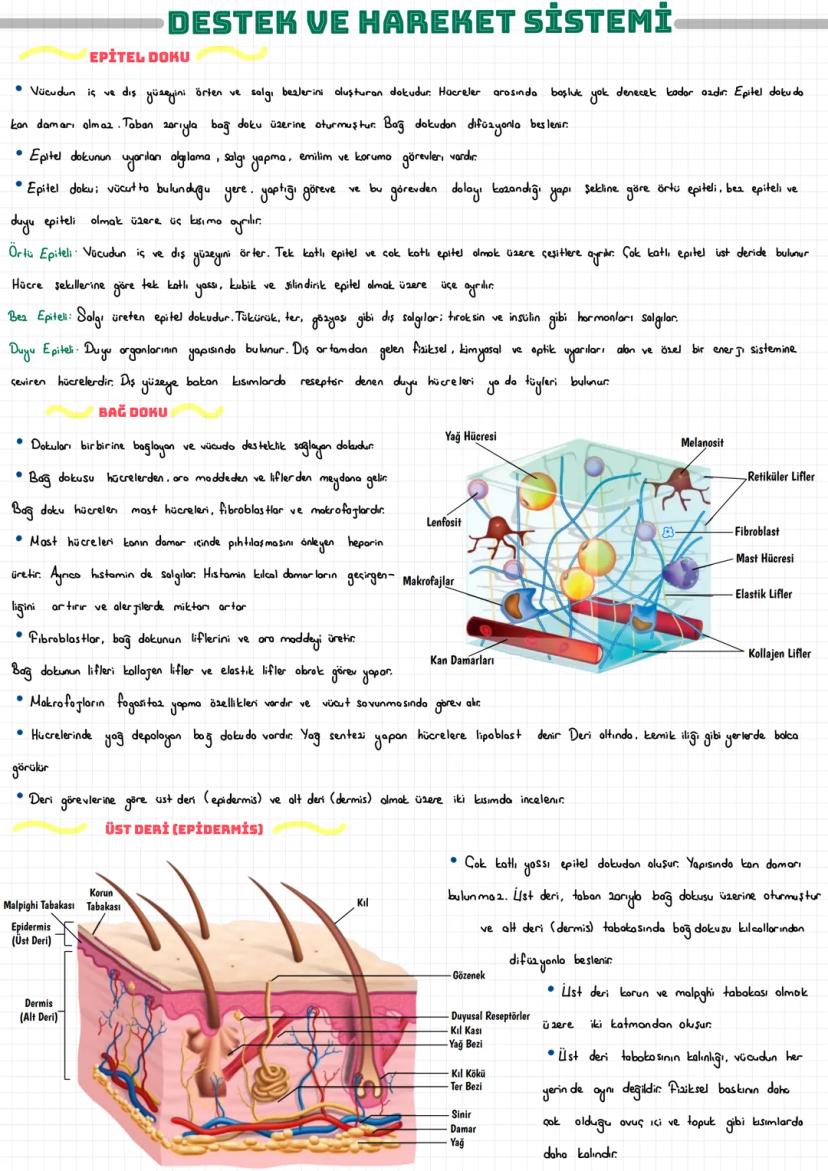 DESTEK VE HAREKET SİSTEMİ
EPİTEL DOKU
• Vücudun iç ve dış yüzeyini örten ve salgı bezlerini oluşturan dokudur. Hücreler arasında boşluk yok denecek kadar azdır. Epitel dokuda
kan damarı olmaz. Taban zarıyla bağ doku üzerine oturmuştur. Bağ dokudan difüzyonla beslenir.
• Epitel dokunun uyarıları algılama, salgı yapma, emilim ve koruma görevleri vardır.
• Epitel doku; vücutta bulunduğu yere, yaptığı göreve ve bu görevden dolayı kazandığı yapı şekline göre örtü epiteli, bez epiteli ve
duyu epiteli olmak üzere üç kısıma ayrılır.
Örtü Epiteli: Vücudun iç ve dış yüzeyini örter. Tek katlı epitel ve çok katlı epitel olmak üzere çeşitlere ayrılır. Çok katlı epitel üst deride bulunur
Hücre şekillerine göre tek katlı yassı, kübik ve silindirik epitel olmak üzere üçe ayrılır.
Bez Epiteli: Salgı üreten epitel dokudur. Tükürük, ter, gözyaşı gibi dış salgılar; tiroksin ve insülin gibi hormonları salgılar.
Duyu Epiteli: Duyu organlarının yapısında bulunur. Dış ortamdan gelen fiziksel, kimyasal ve optik uyarıları alan ve özel bir enerji sistemine
çeviren hücrelerdir. Dış yüzeye bakan kısımlarda reseptör denen duyu hücreleri ya da tüyleri bulunur.
BAĞ DOKU
• Dokuları birbirine bağlayan ve vücuda desteklik sağlayan dokudur.
• Bağ dokusu hücrelerden, ara maddeden ve liflerden meydana gelir.
Bağ doku hücreleri mast hücreleri, fibroblastlar ve makrofajlardır.
• Mast hücreleri kanın damar içinde pıhtılaşmasını önleyen heparin
üretir. Ayrıca histamin de salgılar. Histamin kılcal damarların geçirgen-
liğini artırır ve alerjilerde miktarı artar
• Fibroblastlar, bağ dokunun liflerini ve ara maddeyi üretir.
Bağ dokunun lifleri kollajen lifler ve elastik lifler olarak görev yapar.
• Makrofajların fagositoz yapma özellikleri vardır ve vücut savunmasında görev alır.
• Hücrelerinde yağ depolayan bağ dokuda vardır. Yağ sentezi yapan hücrelere lipoblast denir Deri altında, kemik iliği gibi yerlerde bolca
görülür
• Deri görevlerine göre üst deri (epidermis) ve alt deri (dermis) olmak üzere iki kısımda incelenir.
Yağ Hücresi
Melanosit
Retiküler Lifler
Lenfosit
Fibroblast
Mast Hücresi
Makrofajlar
Elastik Lifler
Kan Damarları
Kollajen Lifler
ÜST DERİ (EPİDERMİS)
Malpighi Tabakası
Korun
Tabakası
Epidermis
(Üst Deri)
Dermis
(Alt Deri)
Kıl
Gözenek
Duyusal Reseptörler
Kıl Kası
Yağ Bezi
Kıl Kökü
Ter Bezi
Sinir
Damar
Yağ
• Çok katlı yassı epitel dokudan oluşur. Yapısında kan damarı
bulunmaz. Üst deri, taban zarıyla bağ dokusu üzerine oturmuştur
ve alt deri (dermis) tabakasında bağ dokusu kılcallarından
difüzyonla beslenir.
• Üst deri korun ve malpghi tabakası olmak
üzere iki katmandan oluşur.
• Üst deri tabakasının kalınlığı, vücudun her
yerinde aynı değildir. Fiziksel baskının daha
çok olduğu avuç içi ve topuk gibi kısımlarda
daha kalındır.